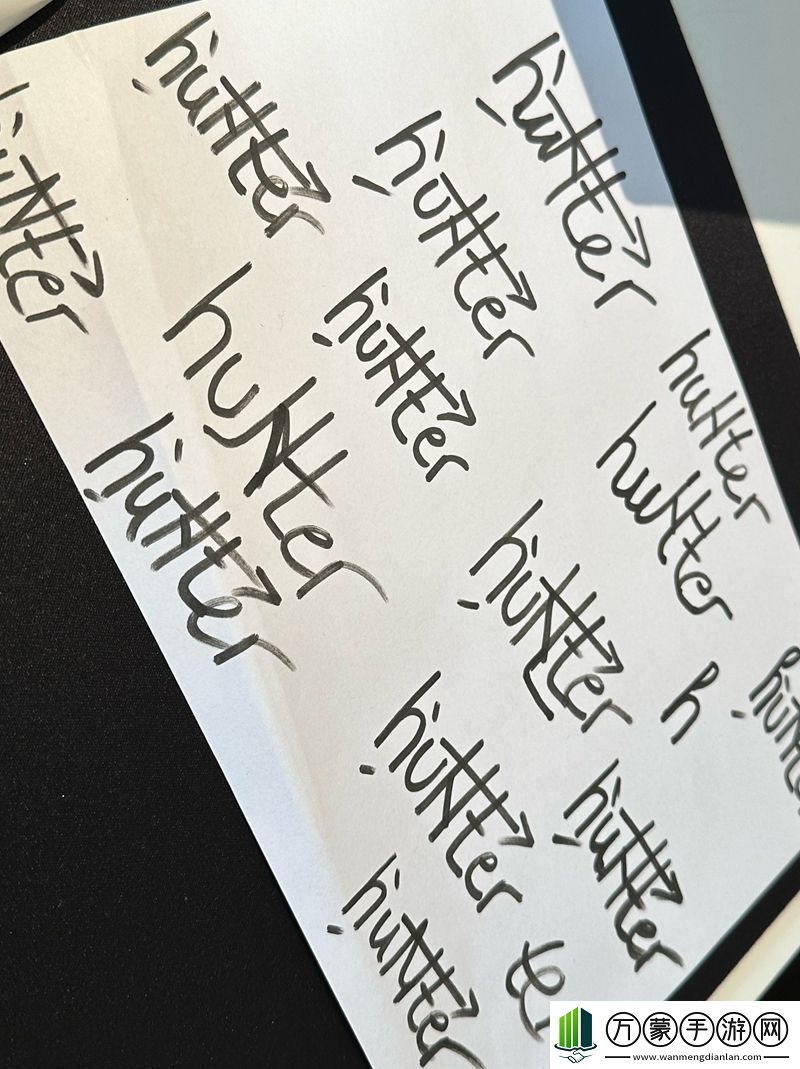 hunter
hunter
hunter
hunter
hunter
hunter
hunter
hunter
hunter
hunter
hunter
h
hunter
hunter
hunter
te
万蒙手游网
www.wanmengdianlan.com